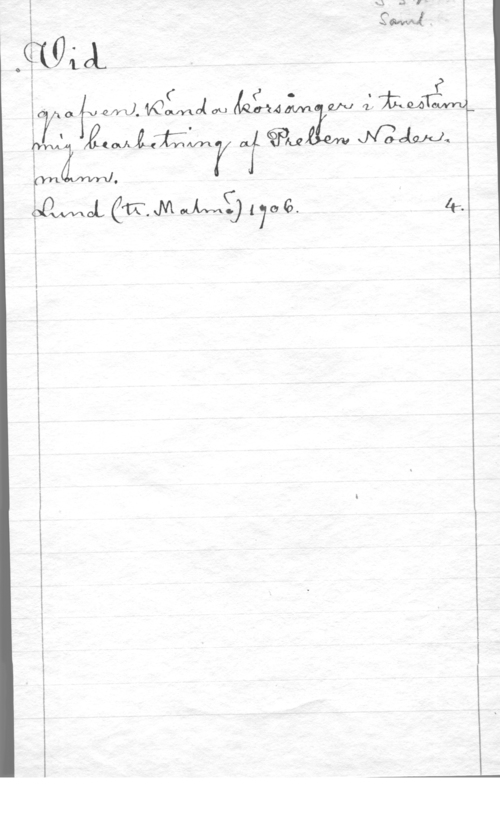 Saml.
Vid
grafven. Kända körsånger i trestäm
mig bearbetning af Preben Noder-
mann.
Lund (tr. Malmö) 1906. 4.